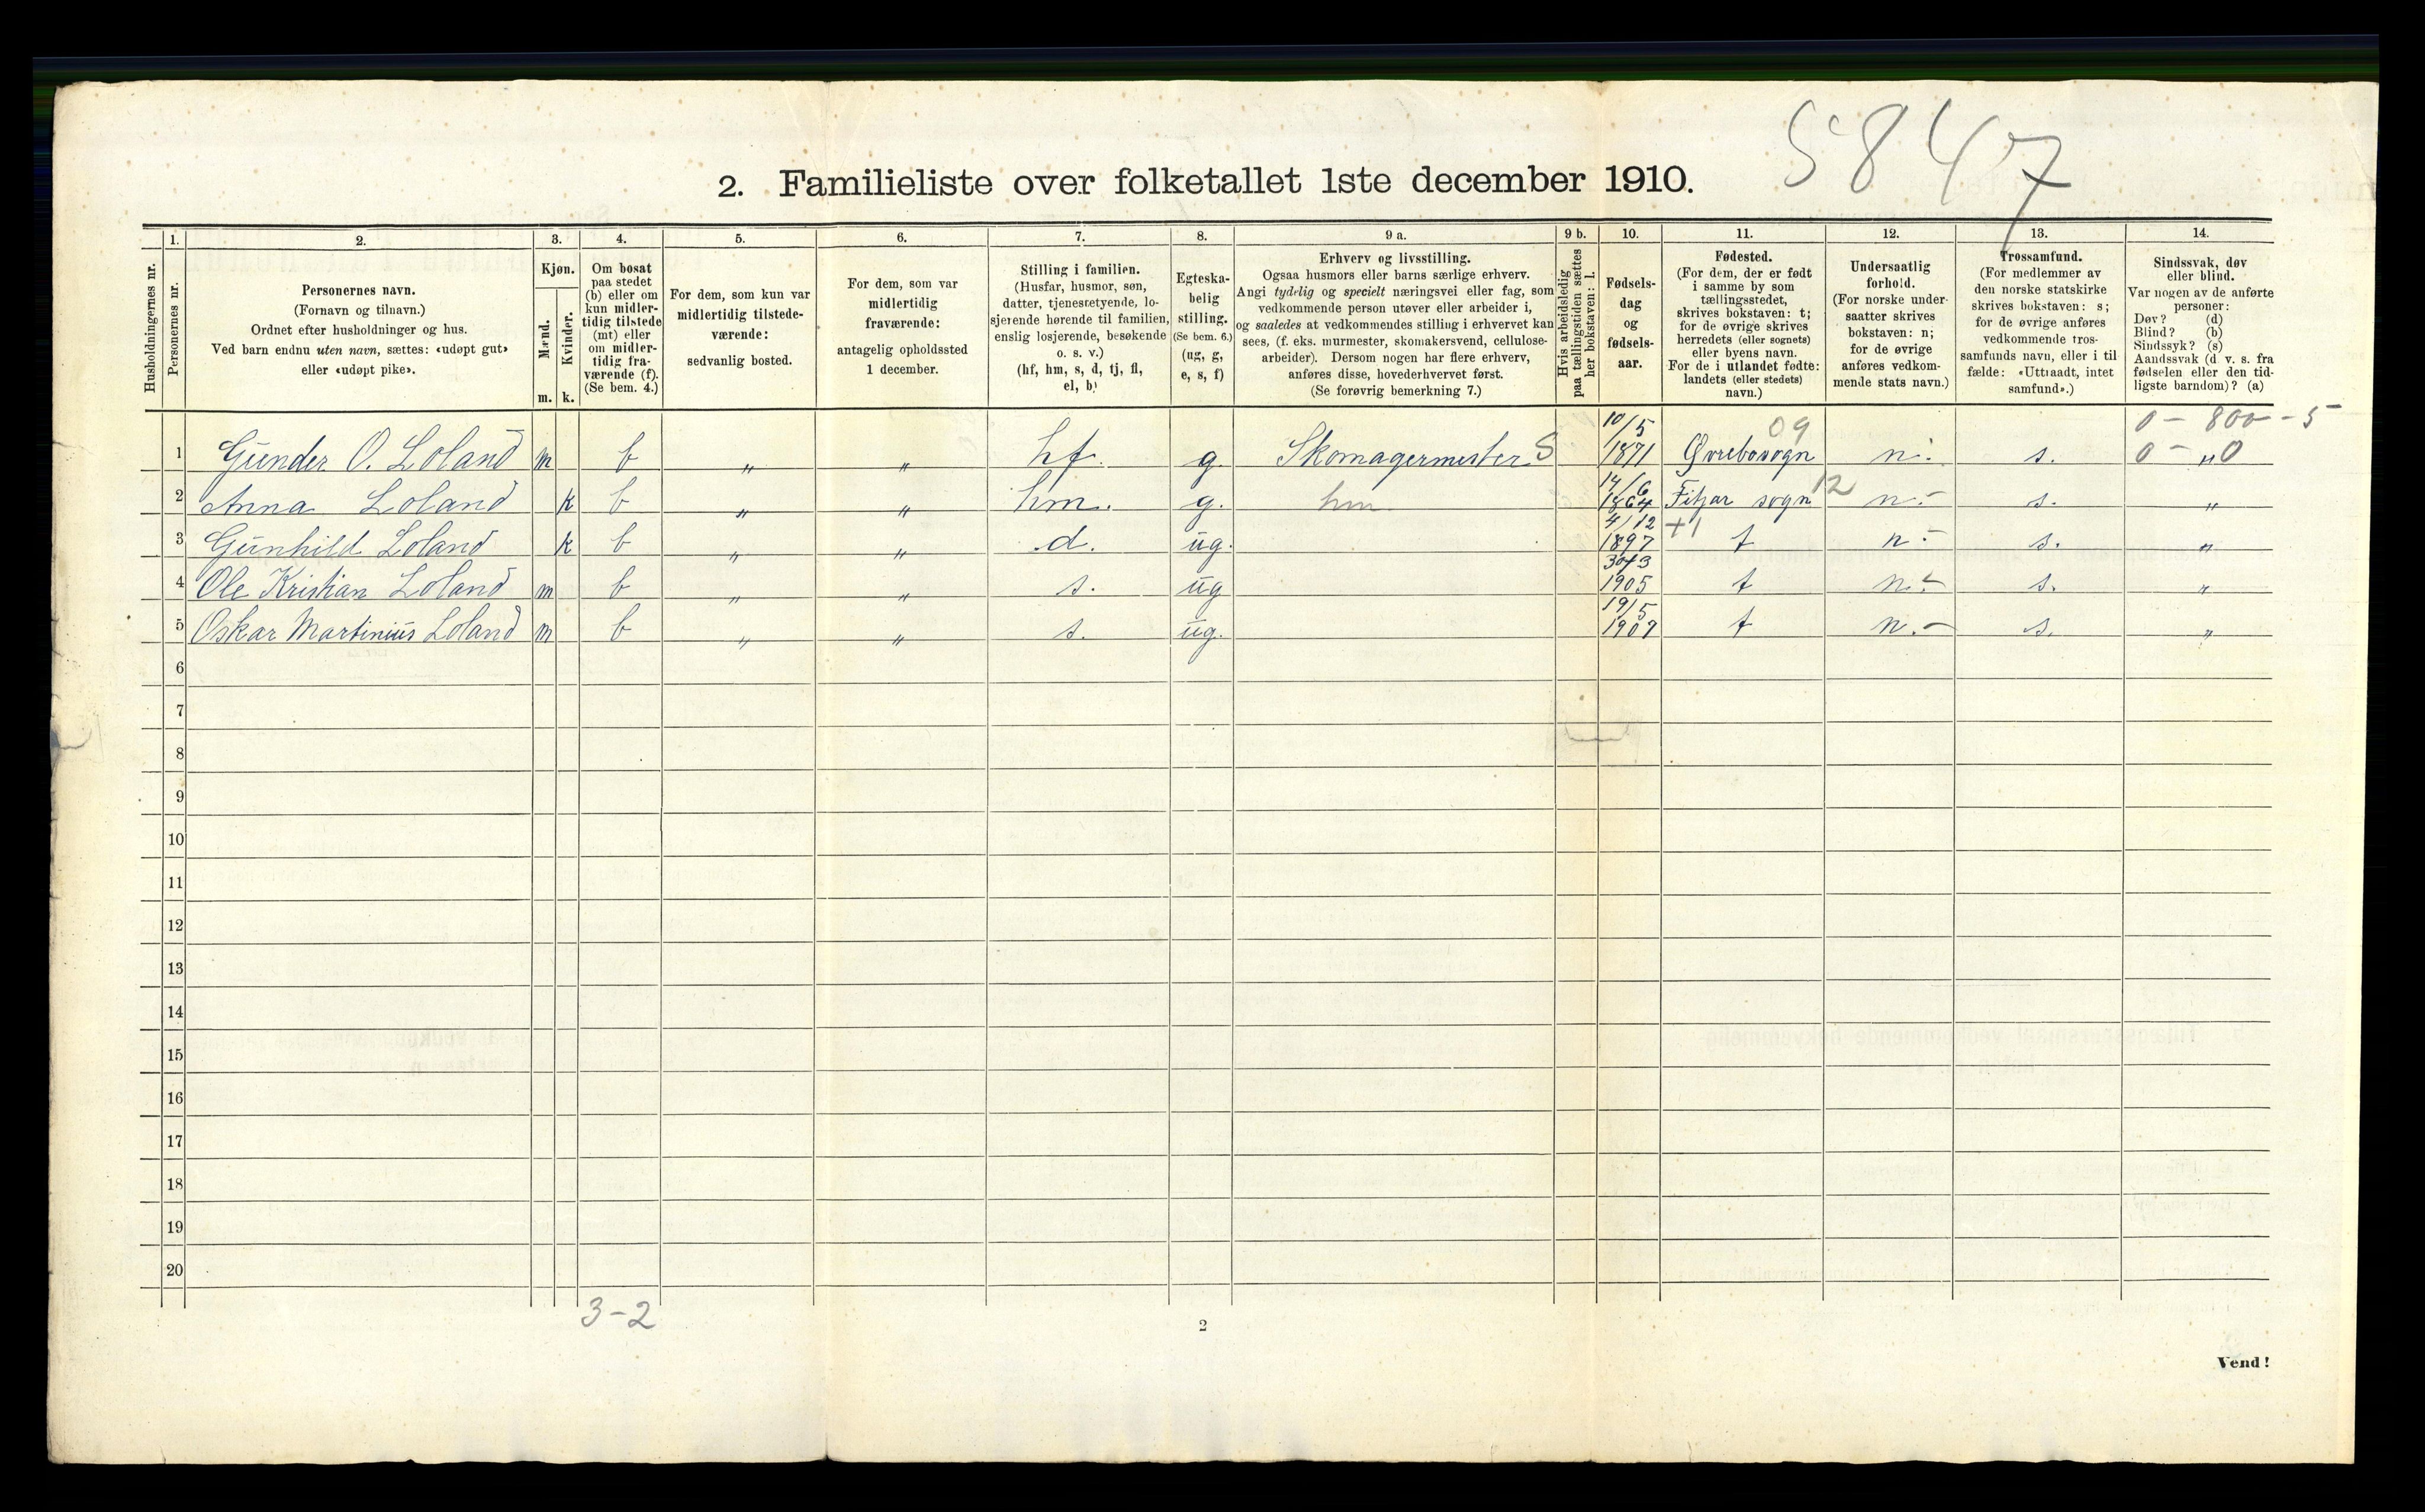 5847
2. Familieliste over folketallet 1ste december 1910.
Husholdningernes nr.
1.
Personernes nr.
2.
Personernes navn.
(Fornavn og tilnavn.)
Ordnet efter husholdninger og hus.
Ved barn endnu uten navn, sættes: «udøpt gut»
eller «udøpt pike».
3.
Kjøn.
Mænd.
m.
Kvinder.
k.
4.
Om bosat
paa stedet
(b) eller om
kun midler-
tidig tilstede
(mt) eller
om midler-
tidig fra-
værende (f).
(Se bem. 4.)
5.
For dem, som kun var
midlertidig tilstede-
værende:
sedvanlig bosted.
6.
For dem, som var
midlertidig
fraværende:
antagelig opholdssted
1 december.
7.
Stilling i familien.
(Husfar, husmor, søn,
datter, tjenestetyende, lo-
sjerende hørende til familien,
enslig losjerende, besøkende
o. s. v.)
(hf, hm, s, d, tj, fl,
el, b)
8.
Egteska-
belig
stilling.
(Se bem. 6.)
(ug, g,
e, s, f)
9 a.
Erhverv og livsstilling.
Ogsaa husmors eller barns særlige erhverv.
Angi tydelig og specielt næringsvei eller fag, som
vedkommende person utøver eller arbeider i,
og saaledes at vedkommendes stilling i erhvervet kan
sees, (f. eks. murmester, skomakersvend, cellulose-
arbeider). Dersom nogen har flere erhverv,
anføres disse, hovederhvervet først.
(Se forøvrig bemerkning 7.)
9 b.
Hvis arbeidsledig
paa tællingstiden sættes
her bokstaven: l.
10.
Fødsels-
dag
og
fødsels-
aar.
11.
Fødested.
(For dem, der er født
i samme by som
tællingsstedet,
skrives bokstaven: t;
for de øvrige skrives
herredets (eller sognets)
eller byens navn.
For de i utlandet fødte:
landets (eller stedets)
navn.)
12.
Undersaatlig
forhold.
(For norske under-
saatter skrives
bokstaven: n;
for de øvrige
anføres vedkom-
mende stats navn.)
13.
Trossamfund.
(For medlemmer av
den norske statskirke
skrives bokstaven: s;
for de øvrige anføres
vedkommende tros-
samfunds navn, eller i til
fælde: «Uttraadt, intet
samfund».)
14.
Sindssvak, døv
eller blind.
Var nogen av de anførte
personer:
Døv? (d)
Blind? (b)
Sindssyk? (s)
Aandssvak (d. v. s. fra
fødselen eller den tid-
ligste barndom)? (a)
0 - 800 - 5
1 Gunder O. Loland m b „ „ hf. g. Skomagermester S 10/5 1871 Øvrebosogn 09 n. s. 0 - „ 0
2 Anna Loland k b „ „ hm. g. hm 14/6 1864 Fitjar sogn 12 n. s. „
3 Gunhild Loland k b „ „ d. ug. 4/12 1897 +1 t n. s. „
4 Ole Kristian Loland m b „ „ s. ug 30/3 1905 t n. s. „
5 Oskar Martinius Loland m b „ „ s. ug. 19/5 1907 t n. s. „
6
7
8
9
10
11
12
13
14
15
16
17
18
19
20
3-2
2
Vend!